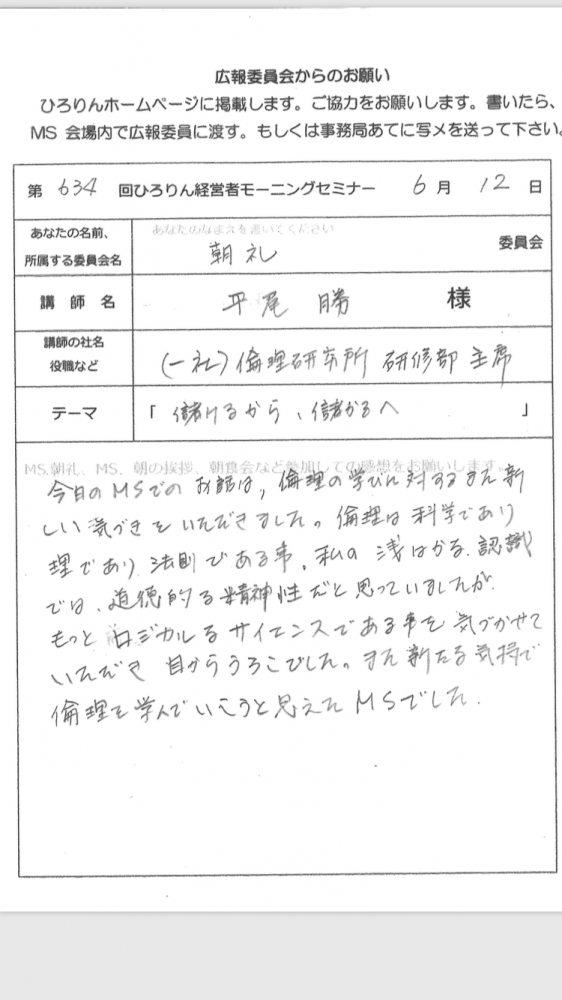 広報委員会からのお願い
ひろりんホームページに掲載します。ご協力をお願いします。書いたら、
MS 会場内で広報委員に渡す。もしくは事務局あてに写メを送って下さい。
第 634 回ひろりん経営者モーニングセミナー 6 月 12 日
あなたの名前、
所属する委員会名
あなたのなまえを書いてください
朝礼
委員会
講師名 平尾 勝 様
講師の社名
役職など
(一社) 倫理研究所 研修部 主席
テーマ 「 儲けるから、儲かるへ 」
MS.朝礼、MS、朝の挨拶、朝食会など参加しての感想をお願いします。
今日のMSでのお話は、倫理の学びに対するまた新
しい気づきをいただきました。倫理は科学であり
理であり 法則である事、私の 浅はかな 認識
では、道徳的な精神性だと思っていましたが、
もっと ロジカルなサイエンスである事を 気づかせて
いただき 目からうろこでした。また新たな気持で
倫理を学んでいこうと思えたMSでした。